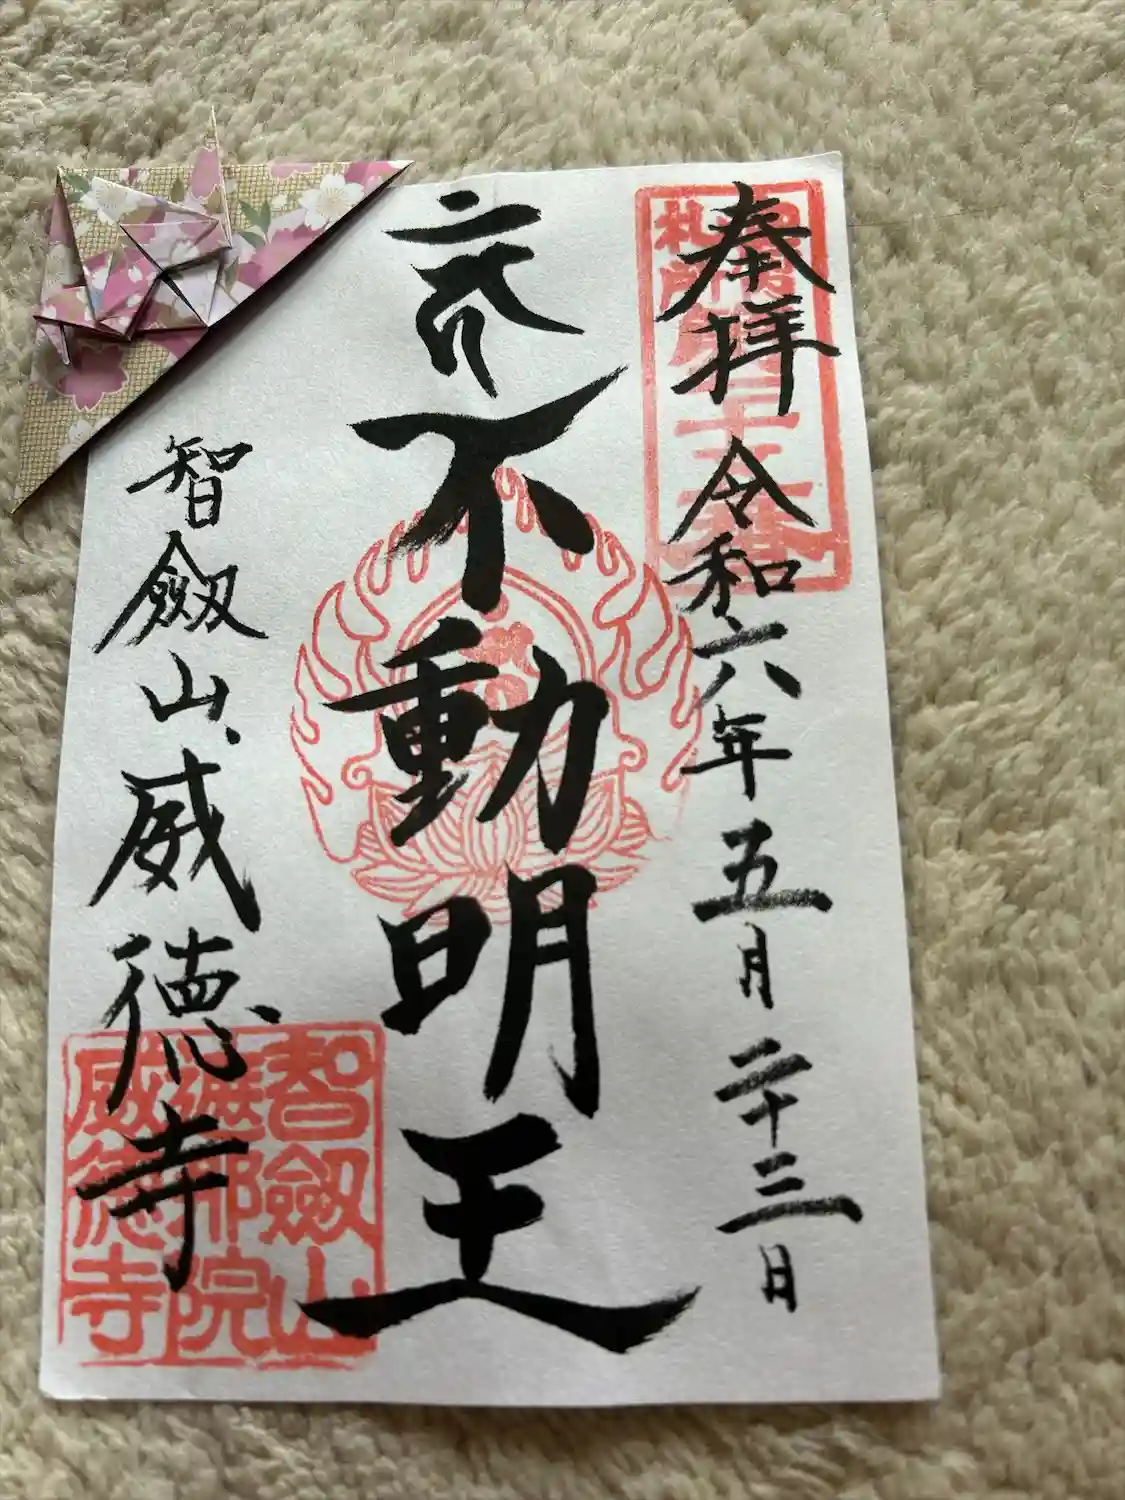 奉拝 令和六年五月二十三日
不動明王
智劔山 威徳寺
智劔山
遮那院
威徳寺